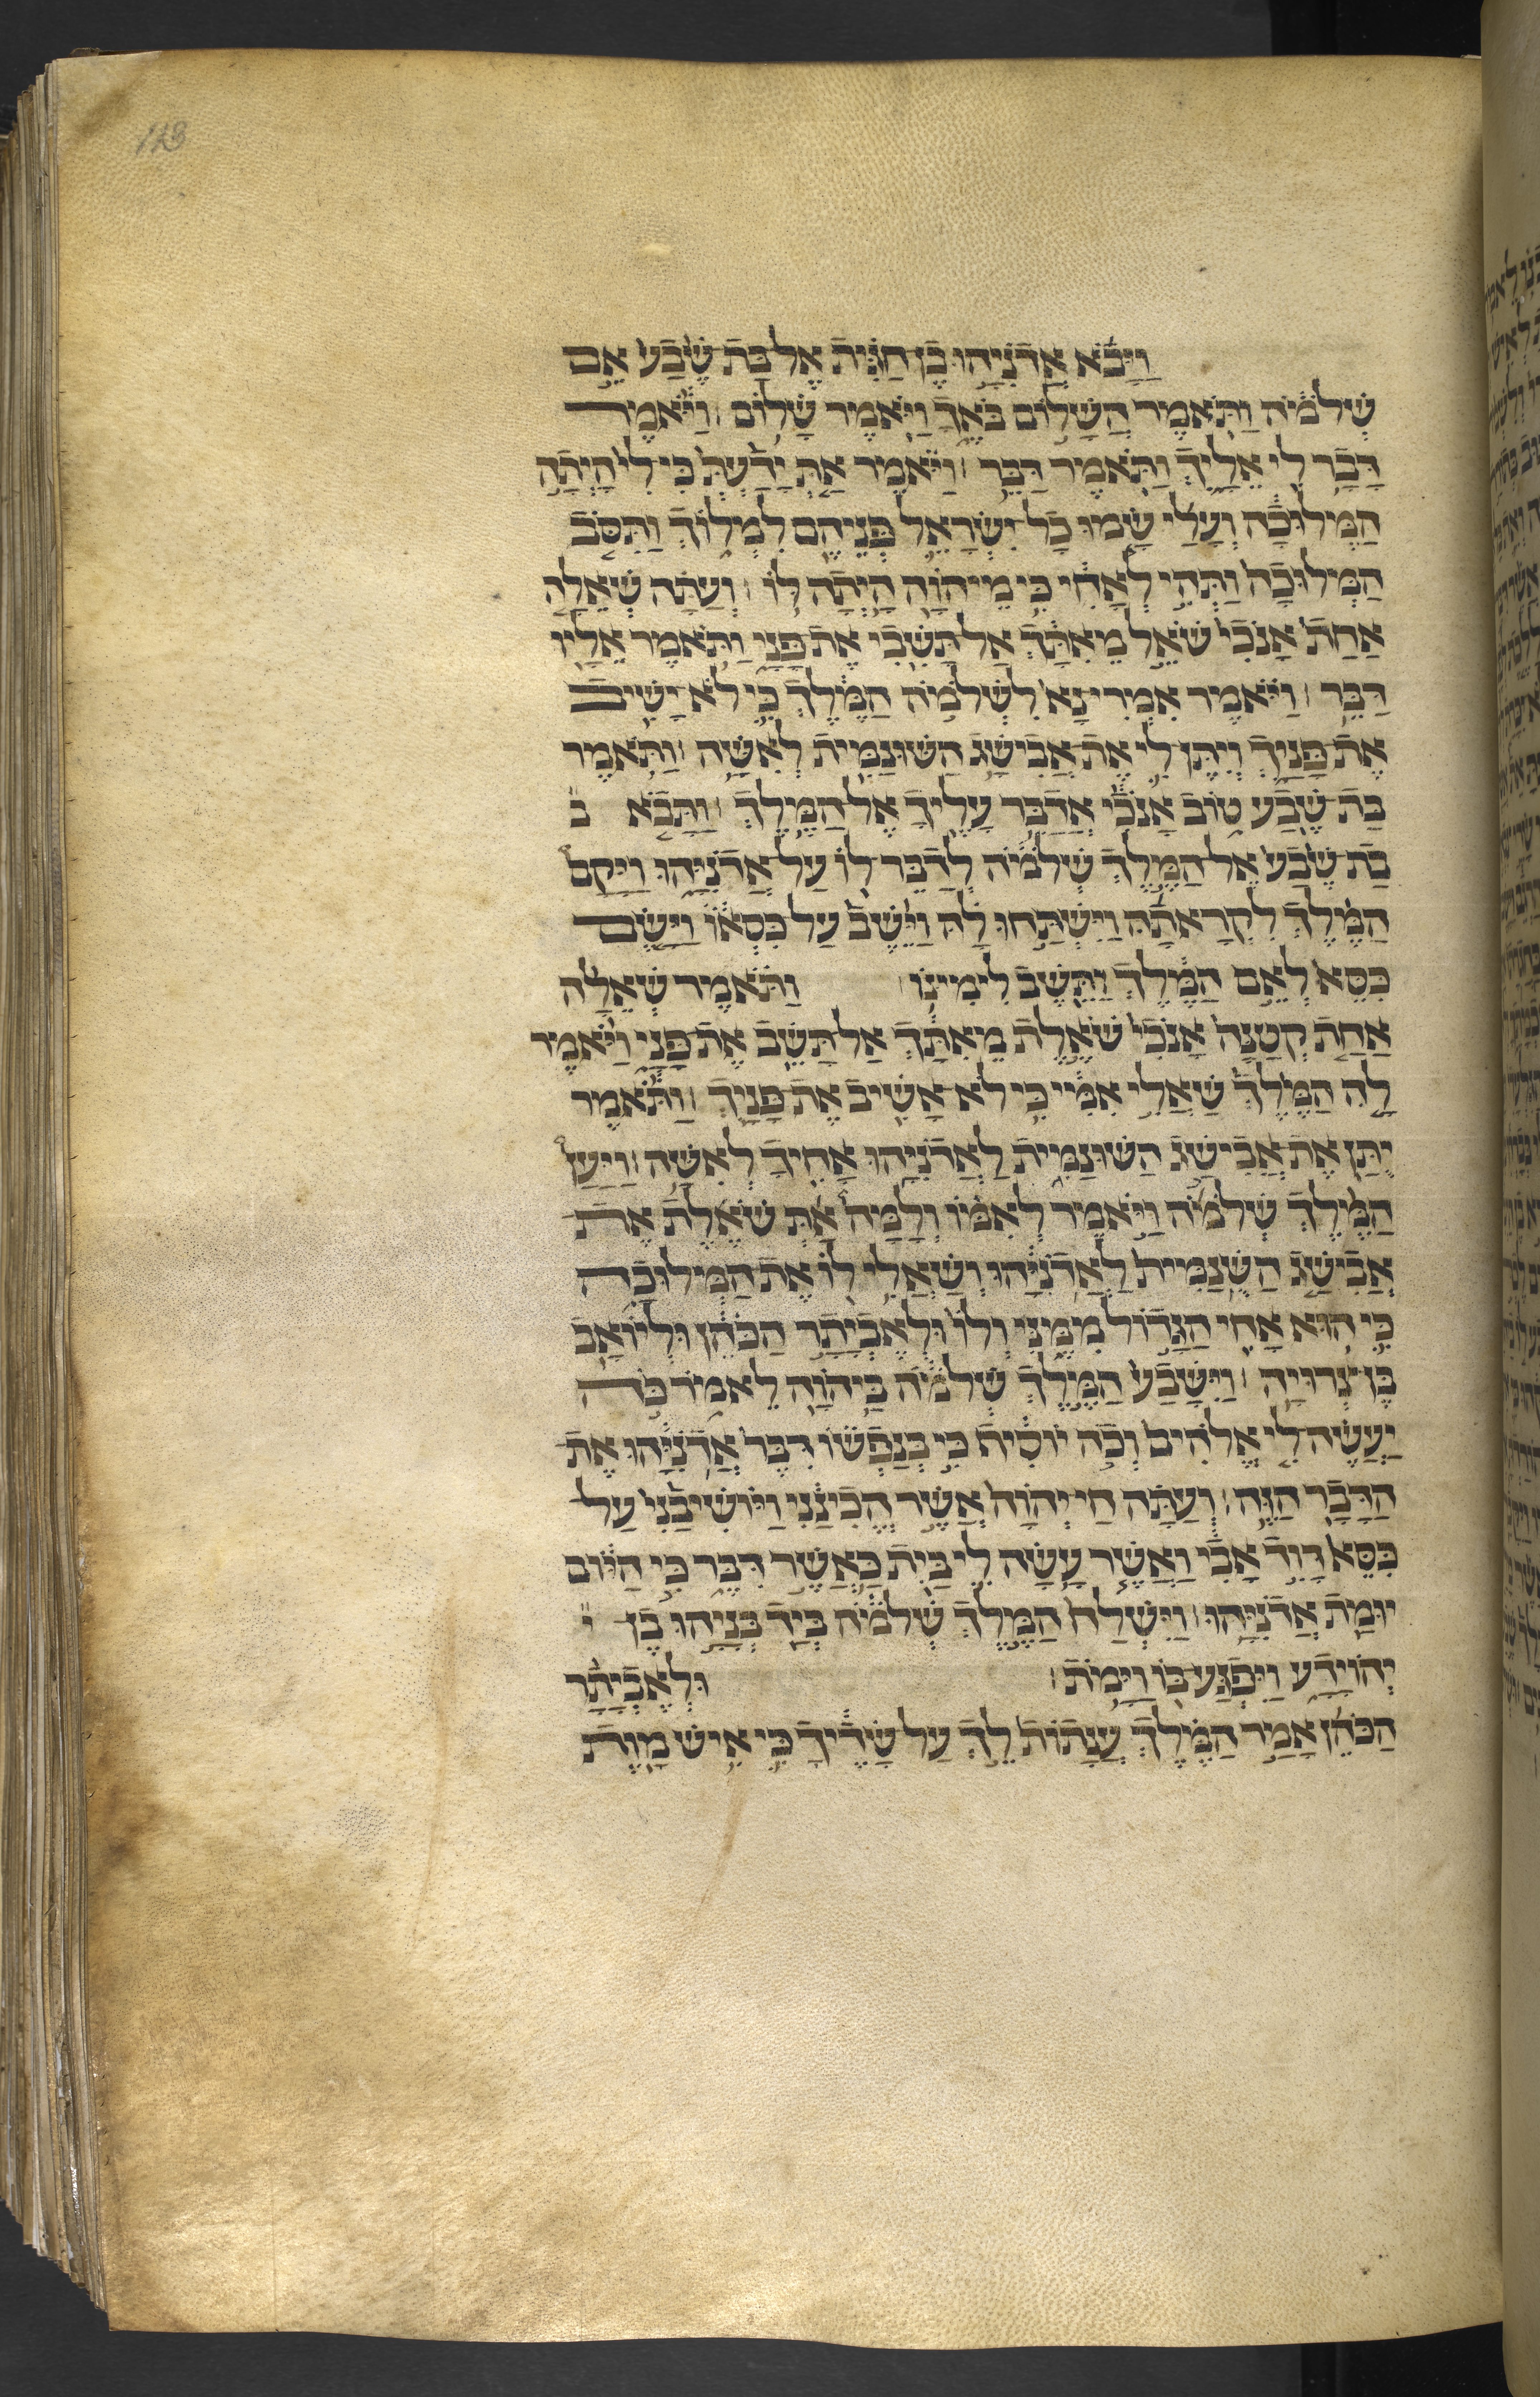 113
וַיָּבֹ֞א אֲדֹנִיָּ֣הוּ בֶן חַגִּ֗ית אֶל בַּת שֶׁ֙בַע֙ אֵ֣ם
שְׁלֹמֹ֔ה וַתֹּ֖אמֶר הֲשָׁל֣וֹם בֹּאֶ֑ךָ וַיֹּ֖אמֶר שָׁלֽוֹם׃ וַיֹּ֕אמֶר
דָּבָ֥ר לִ֖י אֵלָ֑יִךְ וַתֹּ֖אמֶר דַּבֵּֽר׃ וַיֹּ֗אמֶר אַ֤תְּ יָדַ֙עַתְּ֙ כִּי לִי֙ הָיְתָ֣ה
הַמְּלוּכָ֔ה וְעָלַ֞י שָׂ֧מוּ כָֽל יִשְׂרָאֵ֛ל פְּנֵיהֶ֖ם לִמְלֹ֑ךְ וַתִּסֹּ֤ב
הַמְּלוּכָה֙ וַתְּהִ֣י לְאָחִ֔י כִּ֥י מֵיְהוָ֖ה הָ֥יְתָה לּֽוֹ׃ וְעַתָּ֗ה שְׁאֵלָ֤ה
אַחַת֙ אָֽנֹכִי֙ שֹׁאֵ֣ל מֵֽאִתָּ֔ךְ אַל תָּשִׁ֖בִי אֶת פָּנָ֑י וַתֹּ֥אמֶר אֵלָ֖יו
דַּבֵּֽר׃ וַיֹּ֗אמֶר אִמְרִי נָא֙ לִשְׁלֹמֹ֣ה הַמֶּ֔לֶךְ כִּ֥י לֹֽא יָשִׁ֖יב
אֶת פָּנָ֑יִךְ וְיִתֶּן לִ֛י אֶת אֲבִישַׁ֥ג הַשּׁוּנַמִּ֖ית לְאִשָּֽׁה׃ וַתֹּ֥אמֶר
בַּת שֶׁ֖בַע ט֑וֹב אָנֹכִ֕י אֲדַבֵּ֥ר עָלֶ֖יךָ אֶל הַמֶּֽלֶךְ׃ וַתָּבֹ֤א
בַת שֶׁ֙בַע֙ אֶל הַמֶּ֣לֶךְ שְׁלֹמֹ֔ה לְדַבֶּר ל֖וֹ עַל אֲדֹנִיָּ֑הוּ וַיָּקָם֩
הַמֶּ֨לֶךְ לִקְרָאתָ֜הּ וַיִּשְׁתַּ֣חוּ לָ֗הּ וַיֵּ֙שֶׁב֙ עַל כִּסְא֔וֹ וַיָּ֤שֶׂם
כִּסֵּא֙ לְאֵ֣ם הַמֶּ֔לֶךְ וַתֵּ֖שֶׁב לִימִינֽוֹ׃ וַתֹּ֗אמֶר שְׁאֵלָ֨ה
אַחַ֤ת קְטַנָּה֙ אָֽנֹכִי֙ שֹׁאֶ֣לֶת מֵֽאִתָּ֔ךְ אַל תָּ֖שֶׁב אֶת פָּנָ֑י וַיֹּֽאמֶר
לָ֤הּ הַמֶּ֙לֶךְ֙ שַׁאֲלִ֣י אִמִּ֔י כִּ֥י לֹֽא אָשִׁ֖יב אֶת פָּנָֽיִךְ׃ וַתֹּ֕אמֶר
יֻתַּ֖ן אֶת אֲבִישַׁ֣ג הַשּׁוּנַמִּ֑ית לַאֲדֹנִיָּ֥הוּ אָחִ֖יךָ לְאִשָּֽׁה׃ וַיַּעַן֩
הַמֶּ֨לֶךְ שְׁלֹמֹ֜ה וַיֹּ֣אמֶר לְאִמּ֗וֹ וְלָמָה֩ אַ֨תְּ שֹׁאֶ֜לֶת אֶת
אֲבִישַׁ֤ג הַשֻּׁנַמִּית֙ לַאֲדֹ֣נִיָּ֔הוּ וְשַֽׁאֲלִי ל֙וֹ אֶת הַמְּלוּכָ֔ה
כִּ֛י ה֥וּא אָחִ֖י הַגָּד֣וֹל מִמֶּ֑נִּי וְלוֹ֙ וּלְאֶבְיָתָ֣ר הַכֹּהֵ֔ן וּלְיוֹאָ֖ב
בֶּן צְרוּיָֽה׃ וַיִּשָּׁבַע֙ הַמֶּ֣לֶךְ שְׁלֹמֹ֔ה בַּֽיהוָ֖ה לֵאמֹ֑ר כֹּ֣ה
יַֽעֲשֶׂה לִּ֤י אֱלֹהִים֙ וְכֹ֣ה יוֹסִ֔יף כִּ֣י בְנַפְשׁ֔וֹ דִּבֶּר֙ אֲדֹ֣נִיָּ֔הוּ אֶת
הַדָּבָ֖ר הַזֶּֽה׃ וְעַתָּ֗ה חַי יְהוָה֙ אֲשֶׁ֣ר הֱכִינַ֗נִי וַיּֽוֹשִׁיבַ֙נִי֙ עַל
כִּסֵּא֙ דָּוִ֣ד אָבִ֔י וַאֲשֶׁ֧ר עָֽשָׂה לִ֛י בַּ֖יִת כַּאֲשֶׁ֣ר דִּבֵּ֑ר כִּ֣י הַיּ֔וֹם
יוּמַ֖ת אֲדֹנִיָּֽהוּ׃ וַיִּשְׁלַח֙ הַמֶּ֣לֶךְ שְׁלֹמֹ֔ה בְּיַ֖ד בְּנָיָ֣הוּ בֶן
יְהוֹיָדָ֑ע וַיִּפְגַּע בּ֖וֹ וַיָּמֹֽת׃ וּלְאֶבְיָתָ֨ר
הַכֹּהֵ֜ן אָמַ֣ר הַמֶּ֗לֶךְ עֲנָתֹת֙ לֵ֣ךְ עַל שָׂדֶ֔יךָ כִּ֛י אִ֥ישׁ מָ֖וֶת